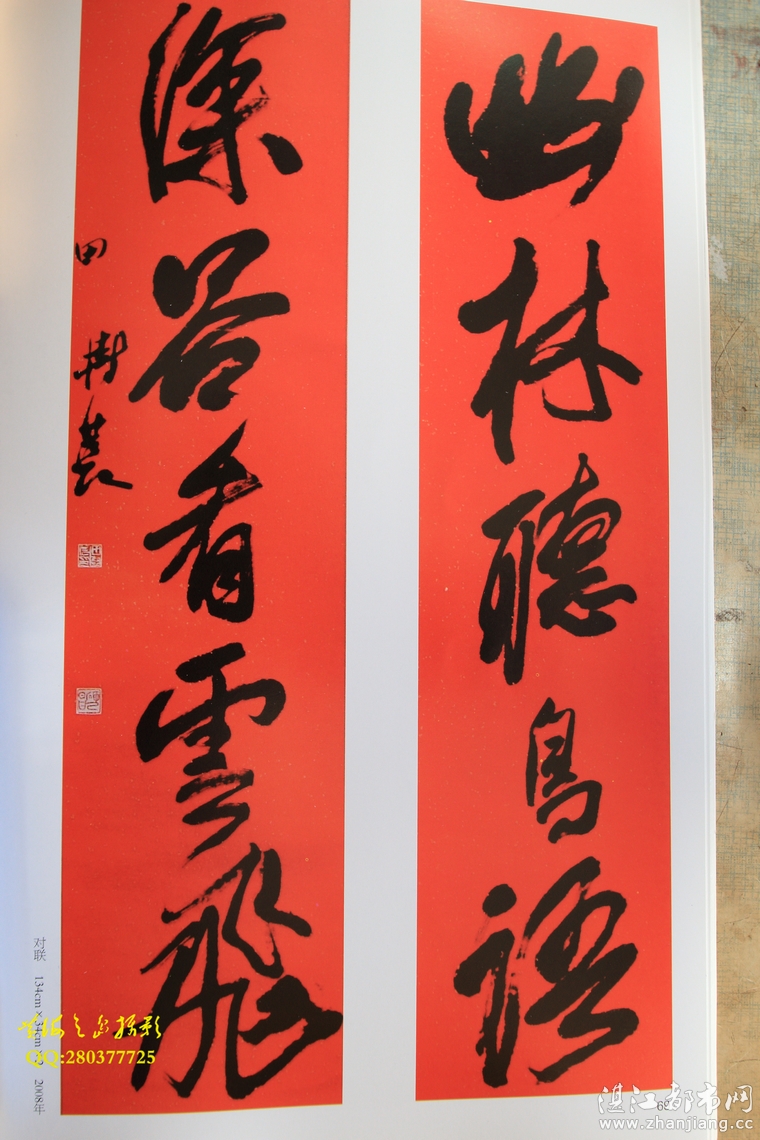 幽林聽鳥語
深谷看雲飛
田樹萇
对联 134cm×34cm 2008年
QQ:280377725
69
湛江都市网
www.zhanjiang.cc